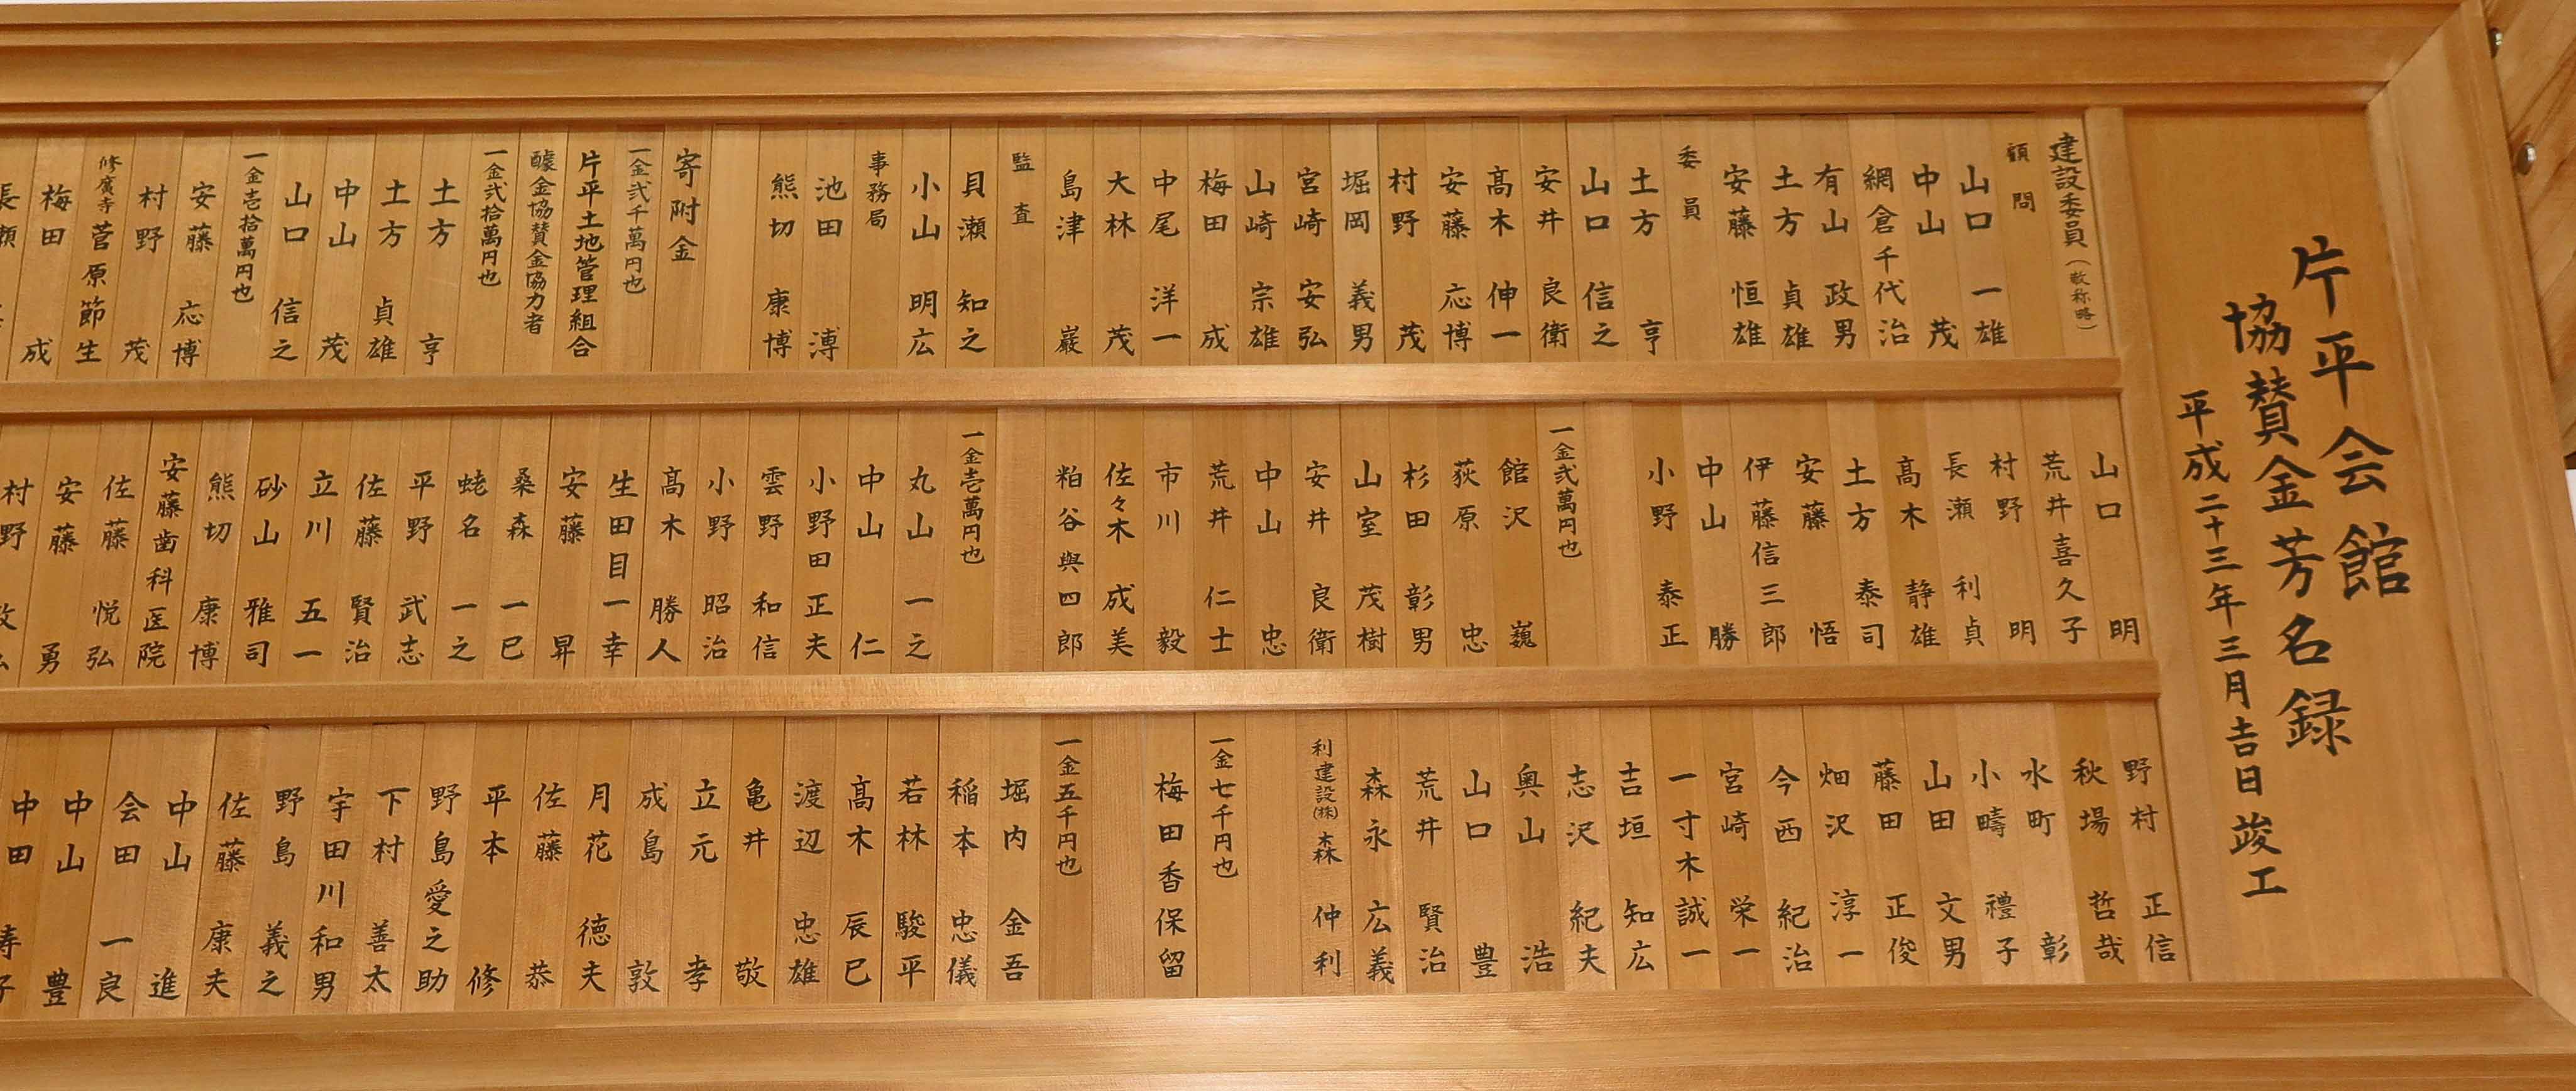 片平会館
協賛金芳名録
平成二十三年三月吉日竣工
建設委員（敬称略）
顧問
山口一雄
中山茂
網倉千代治
有山政男
土方貞雄
安藤恒雄
委員
土方亨
山口信之
安井良衛
髙木伸一
安藤応博
村野茂
堀岡義男
宮崎安弘
山崎宗雄
梅田成
中尾洋一
大林茂
島津巌
監査
貝瀬知之
小山明広
事務局
池田溥
熊切康博
寄附金
一金弐千萬円也
片平土地管理組合
醵金協賛金協力者
一金弐拾萬円也
土方亨
土方貞雄
中山茂
山口信之
一金壱拾萬円也
安藤応博
村野茂
修廣寺菅原節生
梅田成
山口明
荒井喜久子
村野明
長瀬利貞
髙木静雄
土方泰司
安藤悟
伊藤信三郎
中山勝
小野泰正
一金弐萬円也
館沢巍
荻原忠
杉田彰男
山室茂樹
安井良衛
中山忠
荒井仁士
市川毅
佐々木成美
粕谷與四郎
一金壱萬円也
丸山一之
中山仁
小野田正夫
雲野和信
小野昭治
髙木勝人
生田目一幸
安藤昇
桑森一巳
蛯名一之
平野武志
佐藤賢治
立川五一
砂山雅司
熊切康博
安藤歯科医院
佐藤悦弘
安藤勇
村野
野村正信
秋場哲哉
水町彰
小疇禮子
山田文男
藤田正俊
畑沢淳一
今西紀治
宮崎栄一
一寸木誠一
吉垣知広
志沢紀夫
奥山浩
山口豊
荒井賢治
森永広義
利建設㈱森仲利
一金七千円也
梅田香保留
一金五千円也
堀内金吾
稲本忠儀
若林駿平
髙木辰巳
渡辺忠雄
亀井敬
立元孝
成島敦
月花徳夫
佐藤恭
平本修
野島愛之助
下村善太
宇田川和男
野島義之
佐藤康夫
中山進
会田一良
中山豊
中田寿子